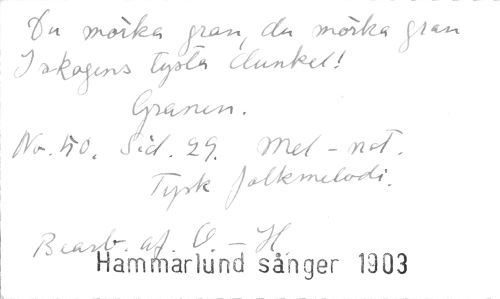 Du mörka gran, du mörka gran
I skogens tysta dunkel!
Granen.
No. 50. Sid. 29. Mel-not.
Tysk folkmelodi.
Bearb. af. O. - H.
Hammarlund sånger 1903